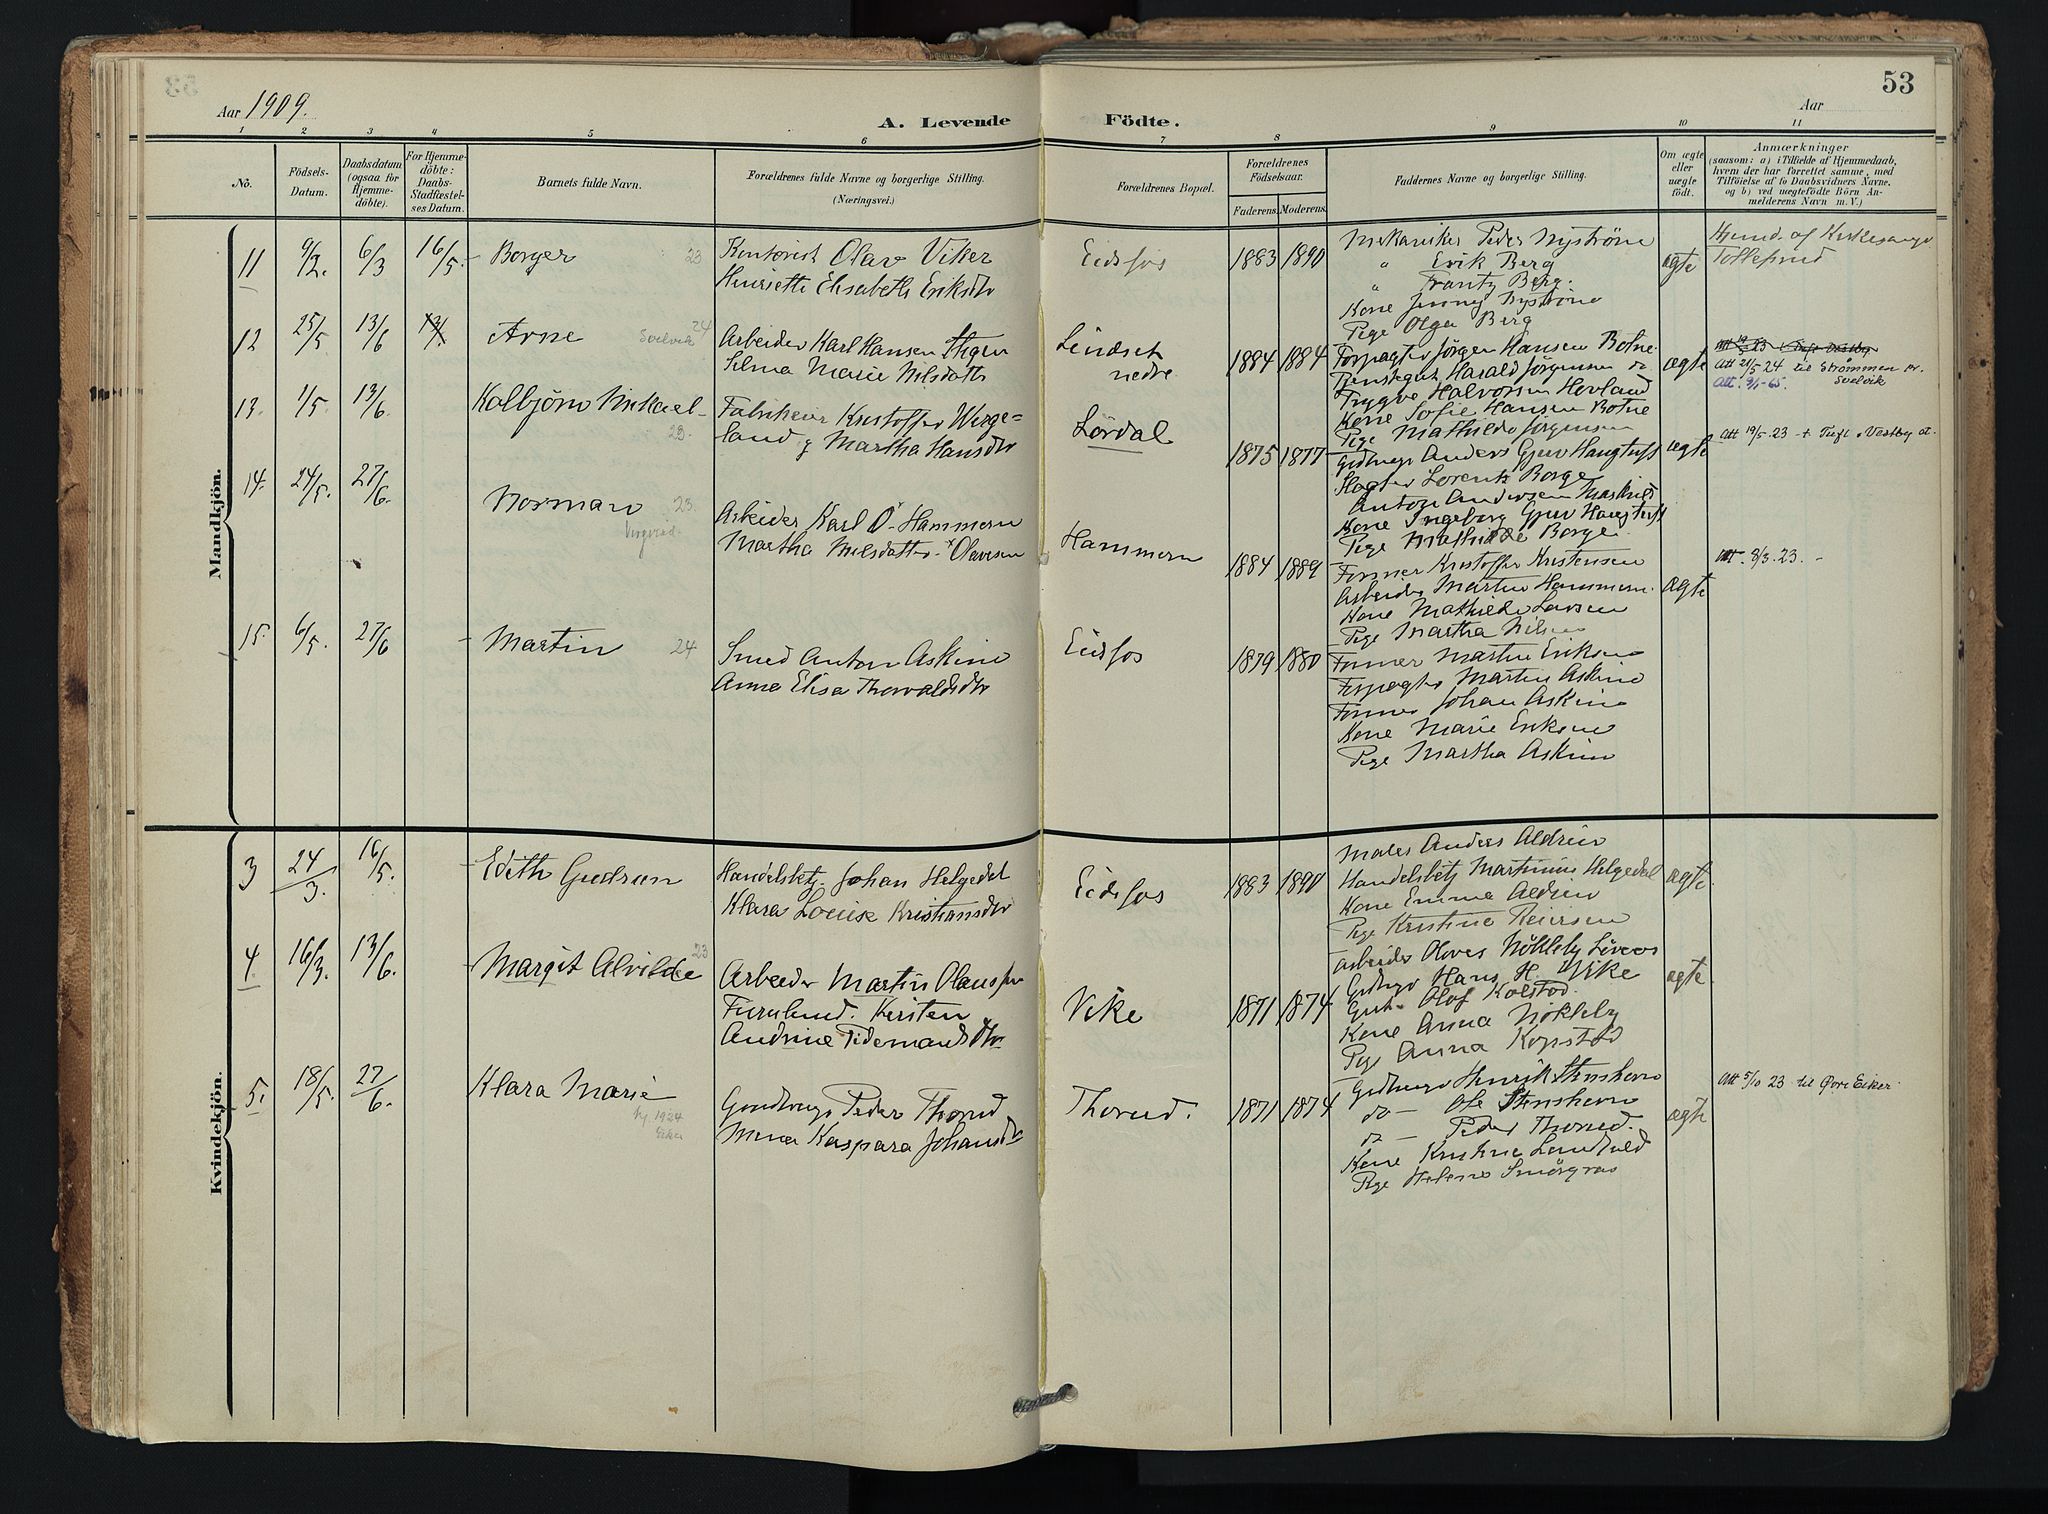 53
Aar 1909.
Aar
A. Levende Födte.
1 2 3 4 5 6 7 8 9 10 11
No.
Födsels-
Datum.
Daabsdatum
(ogsaa for
Hjemme-
döbte).
For Hjemme-
döbte:
Daabs-
Stadfæstel-
ses Datum.
Barnets fulde Navn.
Forældrenes fulde Navne og borgerlige Stilling.
(Næringsvei.)
Forældrenes Bopæl.
Forældrenes
Födselsaar.
Faderens. Moderens.
Faddernes Navne og borgerlige Stilling.
Om ægte
eller
uægte
födt.
Anmærkninger
(saasom: a) i Tilfælde af Hjemmedaab,
hvem der har forrettet samme, med
Tilföielse af to Daabsvidners Navne,
og b) ved uægtefödte Börn An-
melderens Navn m. V.)
Mandkjön.
11 9/2. 6/3 16/5. Borger 23
Kontorist Olav Viker
Henriette Elisabeth Eriksdtr
Eidsfos 1883 1890
Mekaniker Peder Nyström
" Erik Berg
" Frantz Berg.
Kone Jenny Nyström
Pige Olga Berg
ægte
Hjemd. af Kirkesanger
Tollefsrud
12 25/5 13/6 13/ Arne Svelvik 24
Arbeider Karl Hansen
Selma Marie Nilsdatter
Lindset
nedre
1884 1884
Forpagter Jörgen Hansen Botne
Harald Jörgensen do
Trygve Halvorsen Hovland
Kone Sofie Hansen Botne
Pige Mathilde Jörgensen
ægte
Att 21/5 24 til Strømmen pr.
Svelvik
Att. 9/1-65.
13. 1/5. 13/6. Kolbjörn Mikael 23.
Kristoffer Werge=
land og Martha Hansdtr
Lördal
1875 1877
Gdbruger Anders Gjerv Haugtuft
Lorentz Borge
Anton Andersen
Kone Ingeborg Gjerv Haugtuft
Pige Mathilde Borge.
ægte
Att 19/5-23 t Tuft i Vestby
14. 24/5. 27/6. Norman 23.
Arbeider Karl O. Hammern
Martha Nilsdatter Olavesen
Hammern
1884 1889
Former Kristoffer Kristensen
Arbeider Martin Hammern.
Kone Mathilde Larsen
Pige Martha Nilsen
ægte
Att. 8/3. 23. -
15. 6/5. 27/6 Martin 24
Smed Anton Askim
Anna Elisa Thorvaldsdtr
Eidsfos
1879 1880
Former Martin Eriksen
Forpagter Martin Askim
Former Johan Askim
Kone Marie Eriksen
Pige Martha Askim
Kvindekjön.
3 24/3. 16/5. Edith Gudrun
Handelsbetj. Johan Helgedal
Klara Louise Kristiansdtr
Eidsfos
1883 1890
Maler Anders Aldrin
Handelsbetj Martinius Helgedal
Kone Emma Aldrin
Pige Kristine Reiersen
ægte.
4. 16/3. 13/6. Margit Alvilde 23
Arbeider Martin Olaussen
Furulund. Kirsten
Andrine Tidemandsdtr.
Vike
1871 1874
Arbeider Olaves Nökleby
Gdbruger Hans H. Vike
Olof Kolstad.
Kone Anna Nökleby
Pige Anna Kopstad
ægte.
5. 18/5. 27/6. Klara Marie
1924
Eiker
Gaardbruger Peder Thorud
Kaspara Johansdtr
Thorud.
1871 1874
Gdbruger Henrik Stenshorn
do - Ole Stenshorn
do - Peder Thorud.
Kone Kristine Landfald
Pige Helene Smörgrav
ægte
Att 5/10 23 til Øvre Eiker.